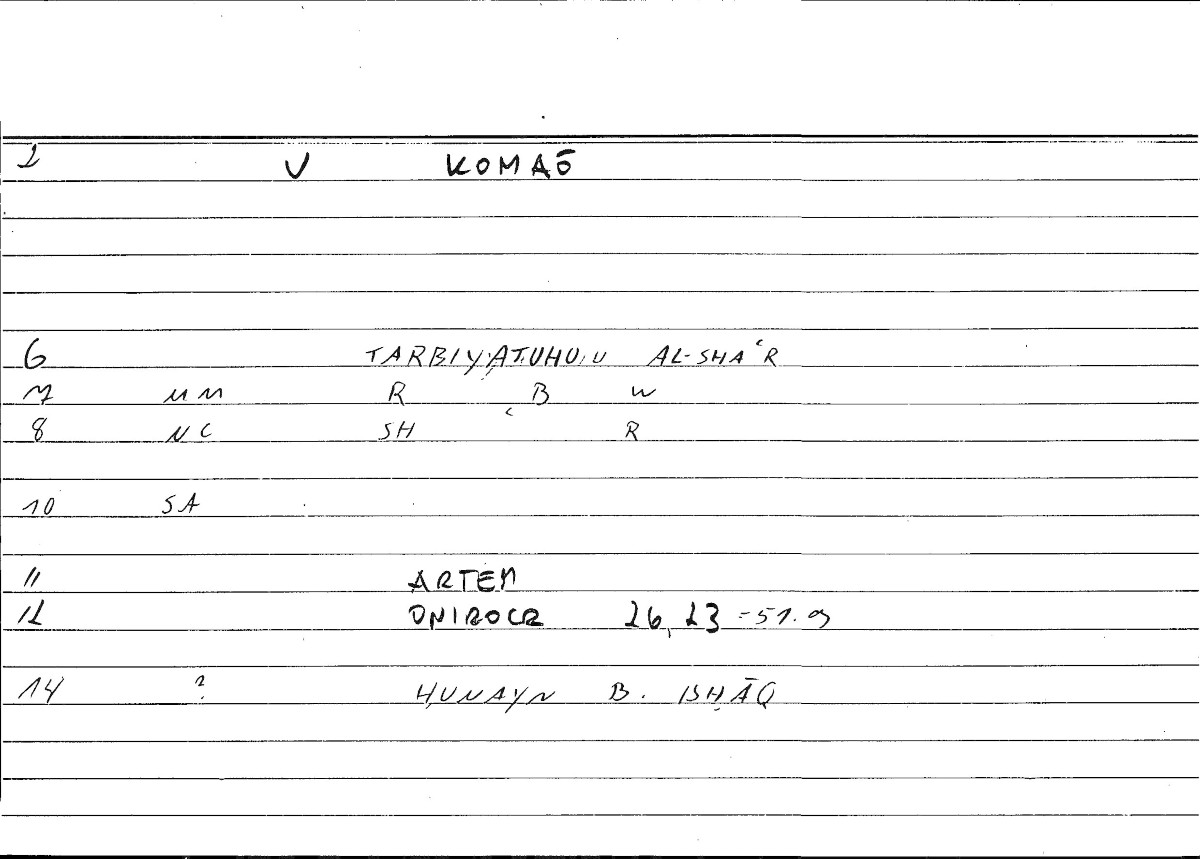 2 V KOMAŌ
6 TARBIYATUHU AL-SHAʿR
7 MM R B W
8 NC SH ʿ R
10 SA
11 ARTEM
12 ONIROCR 26, 23 = 51.9
14 ? ḤUNAYN B. ISḤĀQ